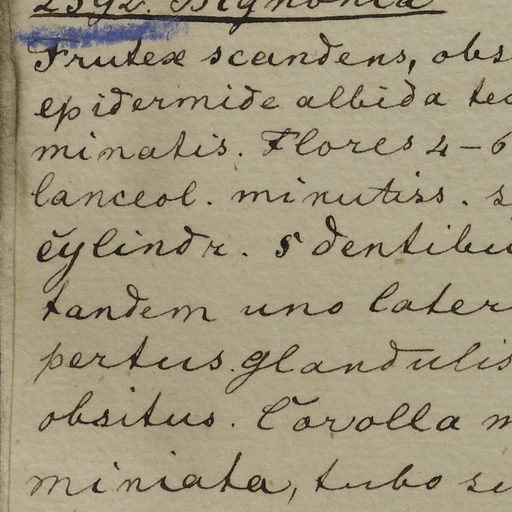 2592. Bignonia
Frutex scandens, obs
epidermide albida tec
minatis. Flores 4-6
lanceol. minutiss. s
cylindr. 5 dentibu
tandem uno later
pertus. glandulis
obsitus. Corolla m
miniata, tubo su